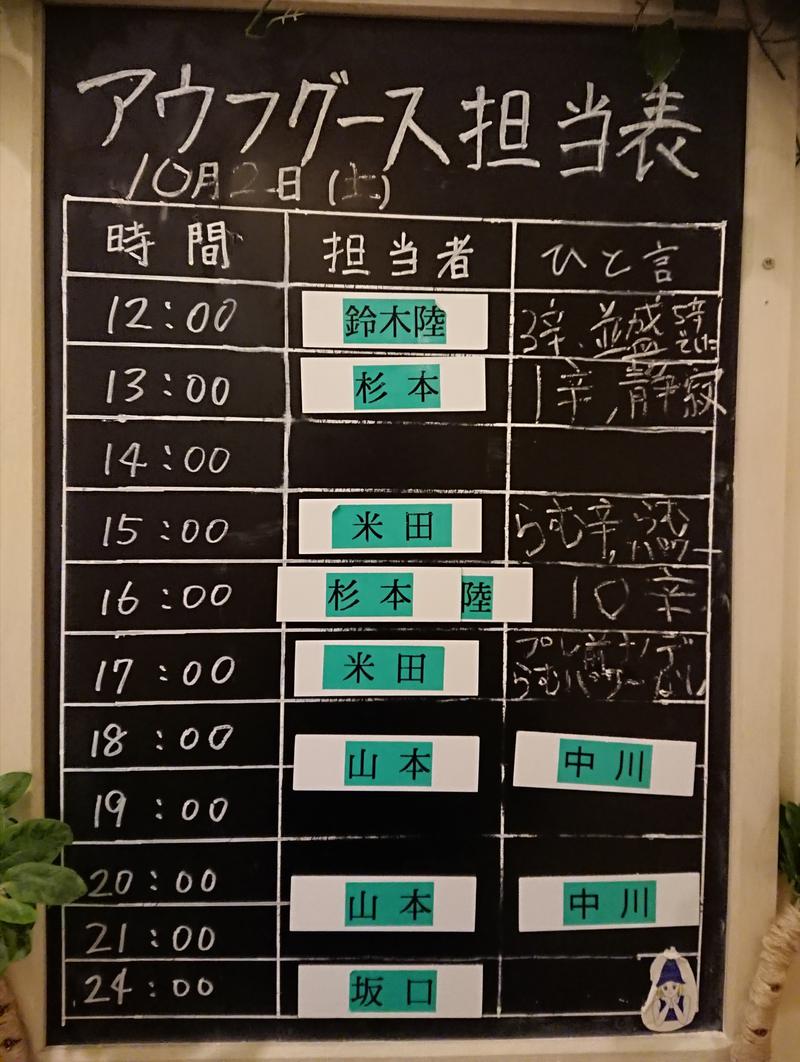 アウフグース担当表
10月2日(土)
時間 担当者 ひと言
12:00 鈴木陸 3辛、並盛
13:00 杉本 1辛,静寂
14:00
15:00 米田 らむ辛,らむパワー
16:00 杉本 陸 10辛
17:00 米田 プレ前ナノデ
らむパワーなし
18:00 山本 中川
19:00
20:00 山本 中川
21:00
24:00 坂口